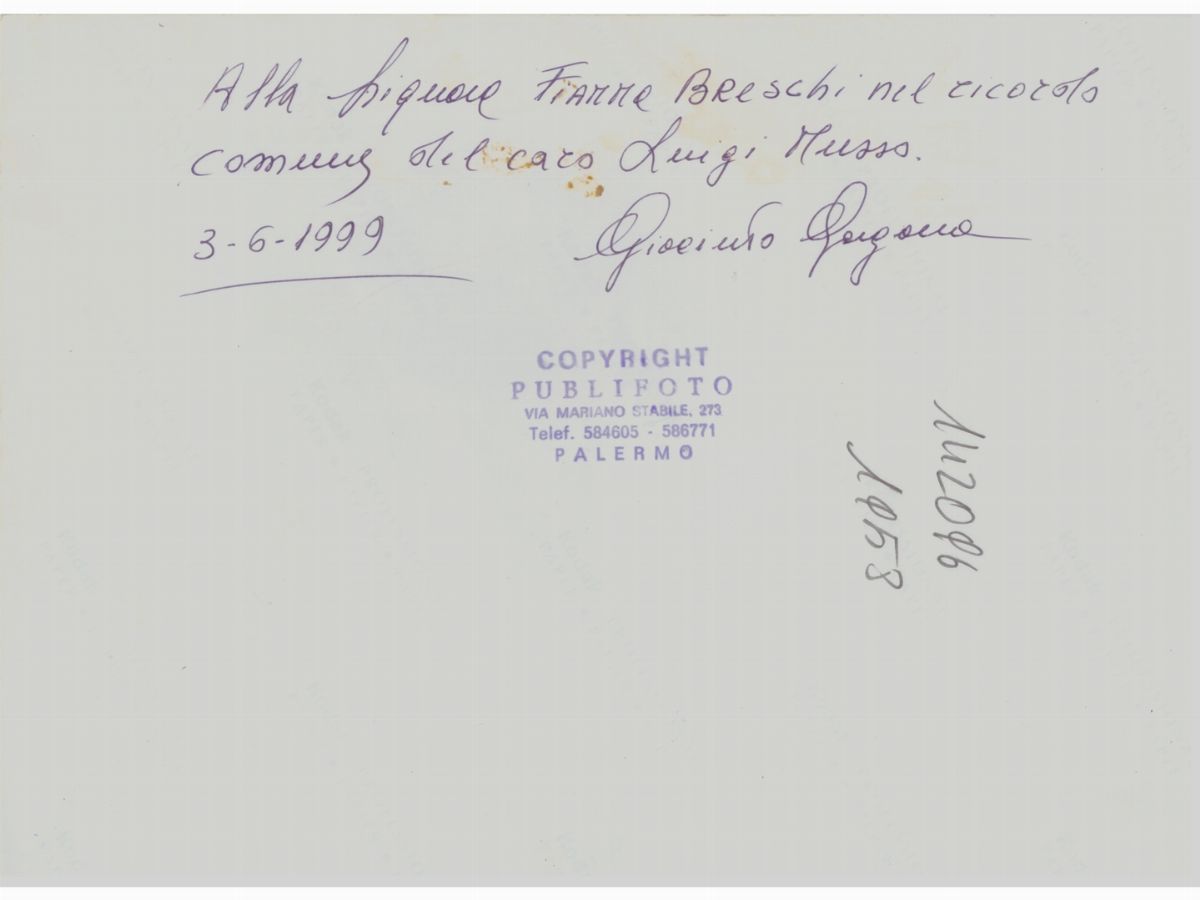 Alla Signora Fiamma Breschi nel ricordo
comune del caro Luigi Musso.
3-6-1999
Giacinto Gargano
COPYRIGHT
PUBLIFOTO
VIA MARIANO STABILE, 273
Telef. 584605 - 586771
PALERMO
1958